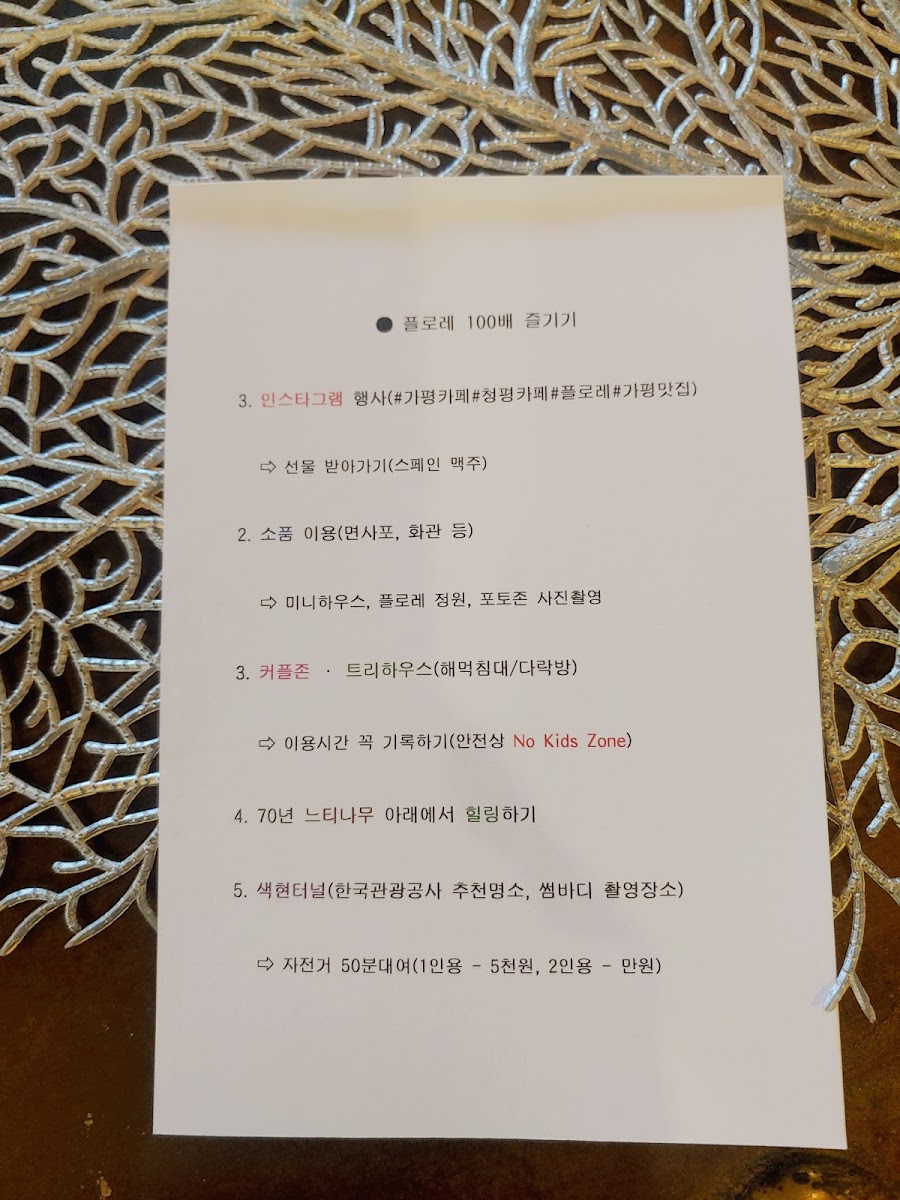 ● 플로레 100배 즐기기
3. 인스타그램 행사(#가평카페#청평카페#플로레#가평맛집)
⇨ 선물 받아가기(스페인 맥주)
2. 소품 이용(면사포, 화관 등)
⇨ 미니하우스, 플로레 정원, 포토존 사진촬영
3. 커플존 · 트리하우스(해먹침대/다락방)
⇨ 이용시간 꼭 기록하기(안전상 No Kids Zone)
4. 70년 느티나무 아래에서 힐링하기
5. 색현터널(한국관광공사 추천명소, 썸바디 촬영장소)
⇨ 자전거 50분대여(1인용 - 5천원, 2인용 - 만원)